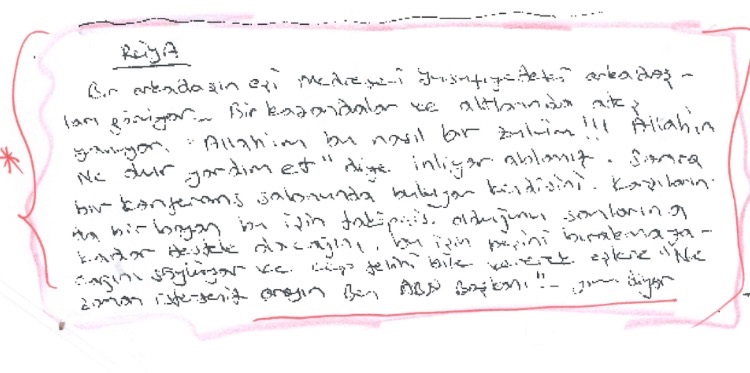 Rüya
Bir arkadaşın eşi Medrese-i Yusufiyedeki arkadaş-
ları görüyor. Bir kazandalar ve altlarında ateş
yanıyor. "Allahım bu nasıl bir zulüm!!! Allahım
Ne olur yardım et" diye inliyor ablamız. Sonra
bir konferans salonunda buluyor kendisini. Karşıların-
da bir bayan bu işin takipçisi olduğunu sonlarına
kadar destek olacağını, bu işin peşini bırakmaya-
cağını söylüyor ve cep telini bile vererek "Ne
zaman isterseniz arayın Ben ABD Başkanı" diyor